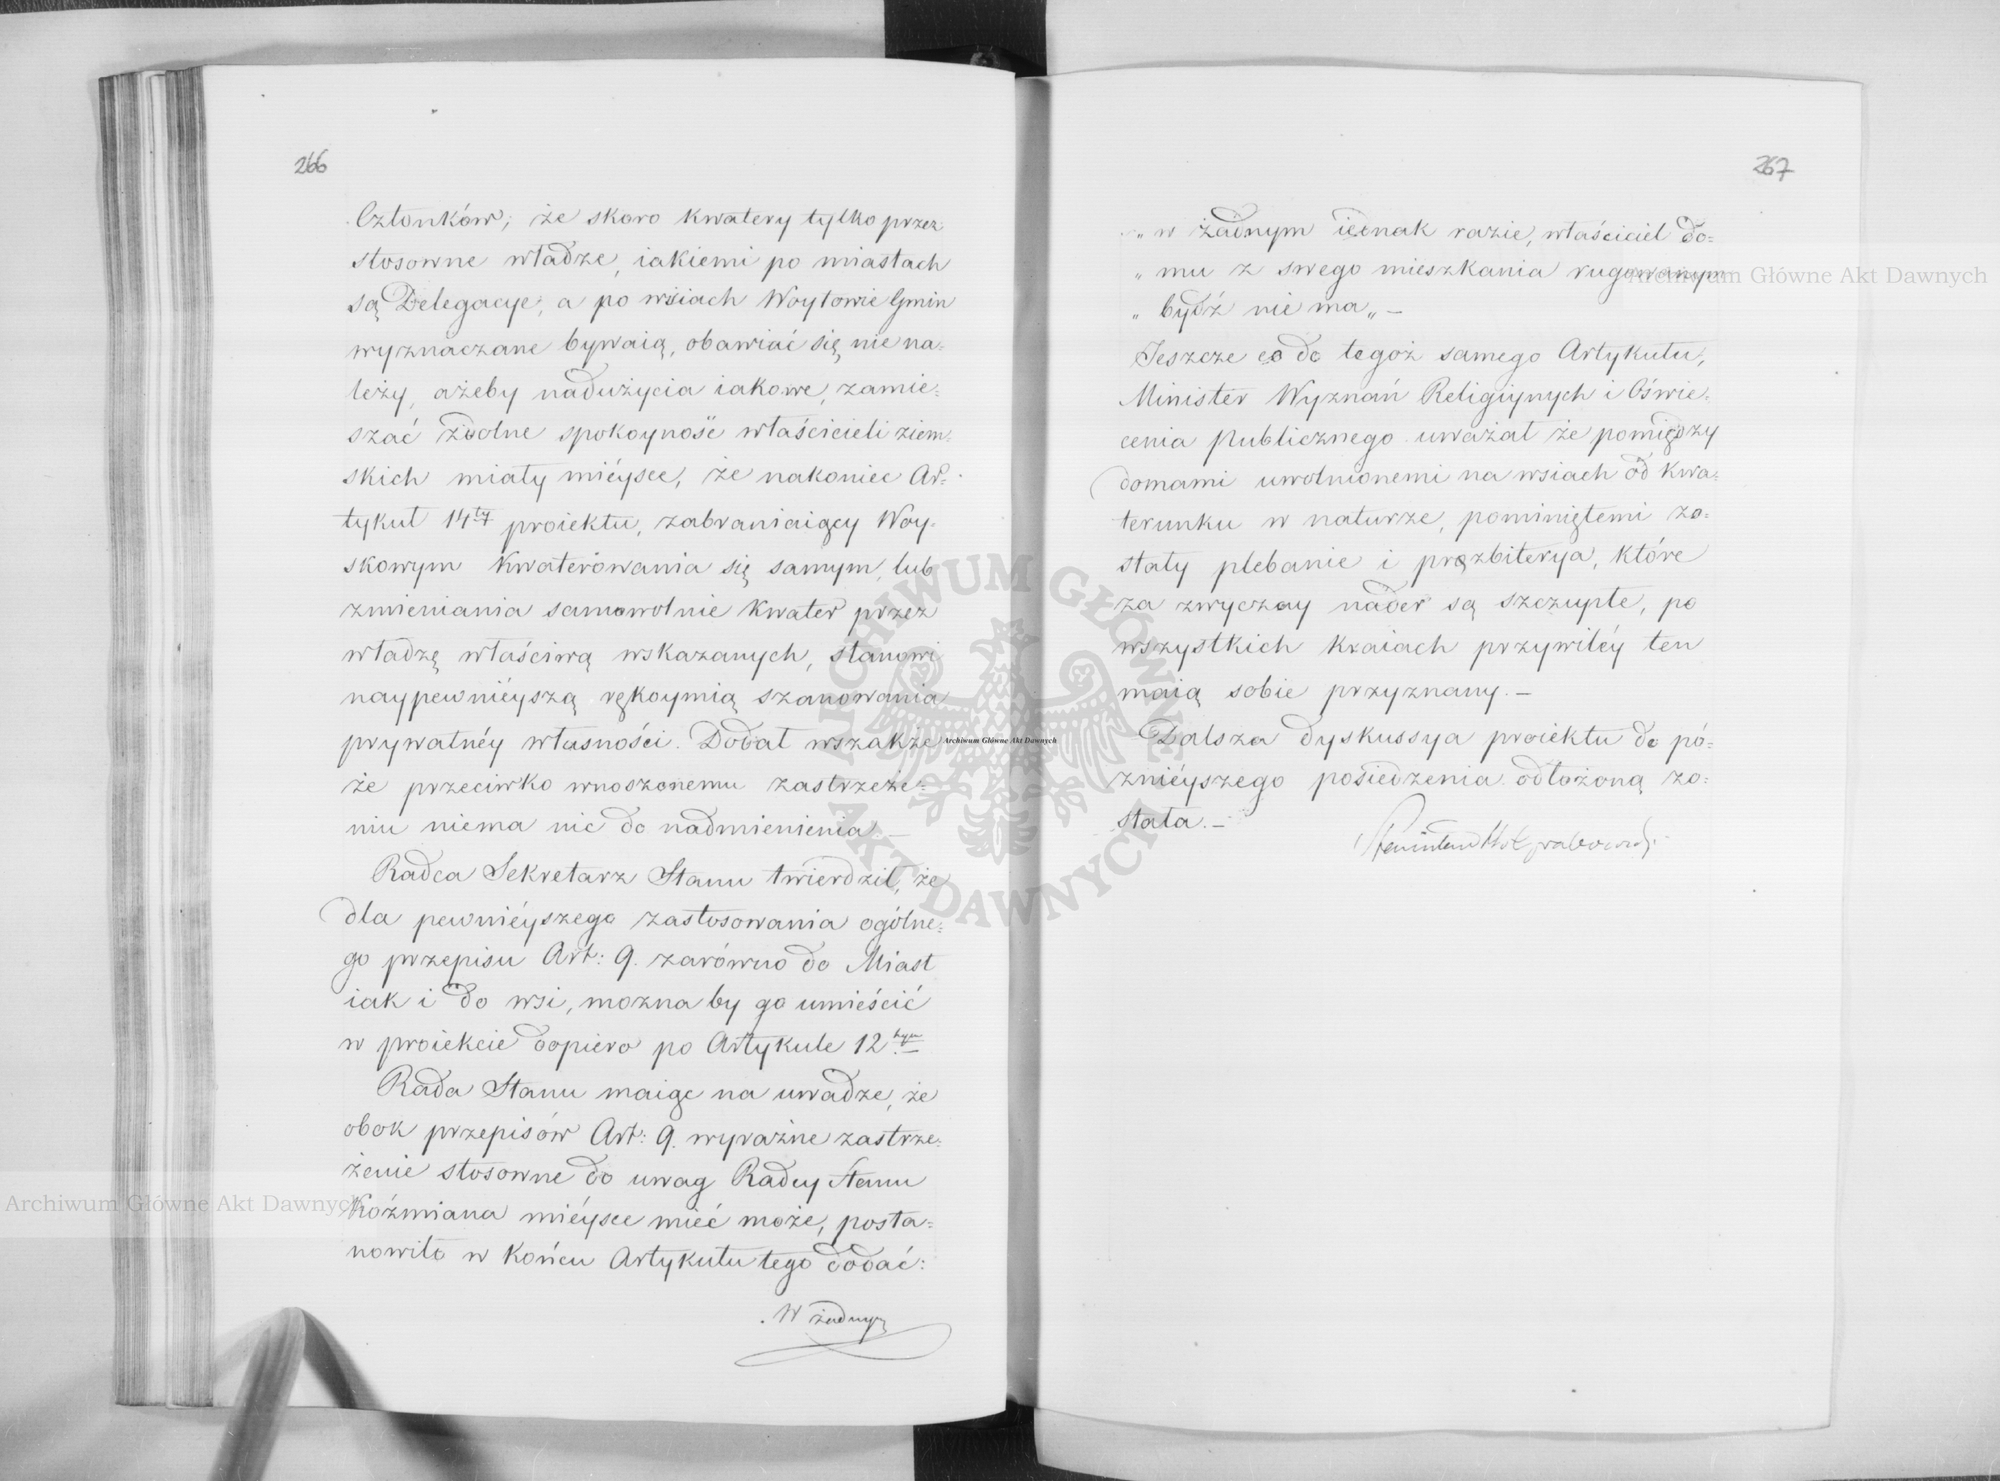 266
Członków; że skoro kwatery tylko przez
stosowne władze, iakiemi po miastach
są Delegacye, a po wsiach Woytowie Gmin
wyznaczane bywaią, obawiać się nie na-
leży, ażeby nadużycia iakowe, zamie-
szać zdolne spokoyność właścicieli ziem-
skich miały mieysce, że nakoniec Ar-
tykuł 14ty proiektu, zabraniaiący Woy-
skowym kwaterowania się samym, lub
zmieniania samowolnie kwater przez
władzę właściwą wskazanych, stanowi
naypewniéyszą rękoymią szanowania
prywatnéy własności. Dodał wszakże
że przeciwko wnoszonemu zastrzeże-
niu niema nic do nadmienienia. —
Radca Sekretarz Stanu twierdził, że
dla pewniéyszego zastosowania ogólne-
go przepisu Art: 9. zarówno do Miast
iak i do wsi, można by go umieścić
w proiekcie dopiero po Artykule 12tym —
Rada Stanu maiąc na uwadze, że
obok przepisów Art: 9. wyraźne zastrze-
żenie stosowne do uwag Radcy Stanu
Koźmiana miéysce mieć może, posta-
nowiła w końcu Artykułu tego dodać:
W żadnym
267
„ w żadnym iednak razie, właściciel do-
„ mu z swego mieszkania rugowanym
„ bydź nie ma „ —
Jeszcze co do tegoż samego Artykułu,
Minister Wyznań Religiynych i Oświe-
cenia Publicznego uważał że pomiędzy
domami uwolnionemi na wsiach od kwa-
terunku w naturze, pominiętemi zo-
stały plebanie i prezbiterya, które
za zwyczay nader są szczupłe, po
wszystkich kraiach przywiléy ten
maią sobie przyznany. —
Dalsza dyskussya proiektu do pó-
źniéyszego posiedzenia odłożoną zo-
stała. —
Archiwum Główne Akt Dawnych
Archiwum Główne Akt Dawnych
Archiwum Główne Akt Dawnych
ARCHIWUM GŁÓWNE AKT DAWNYCH